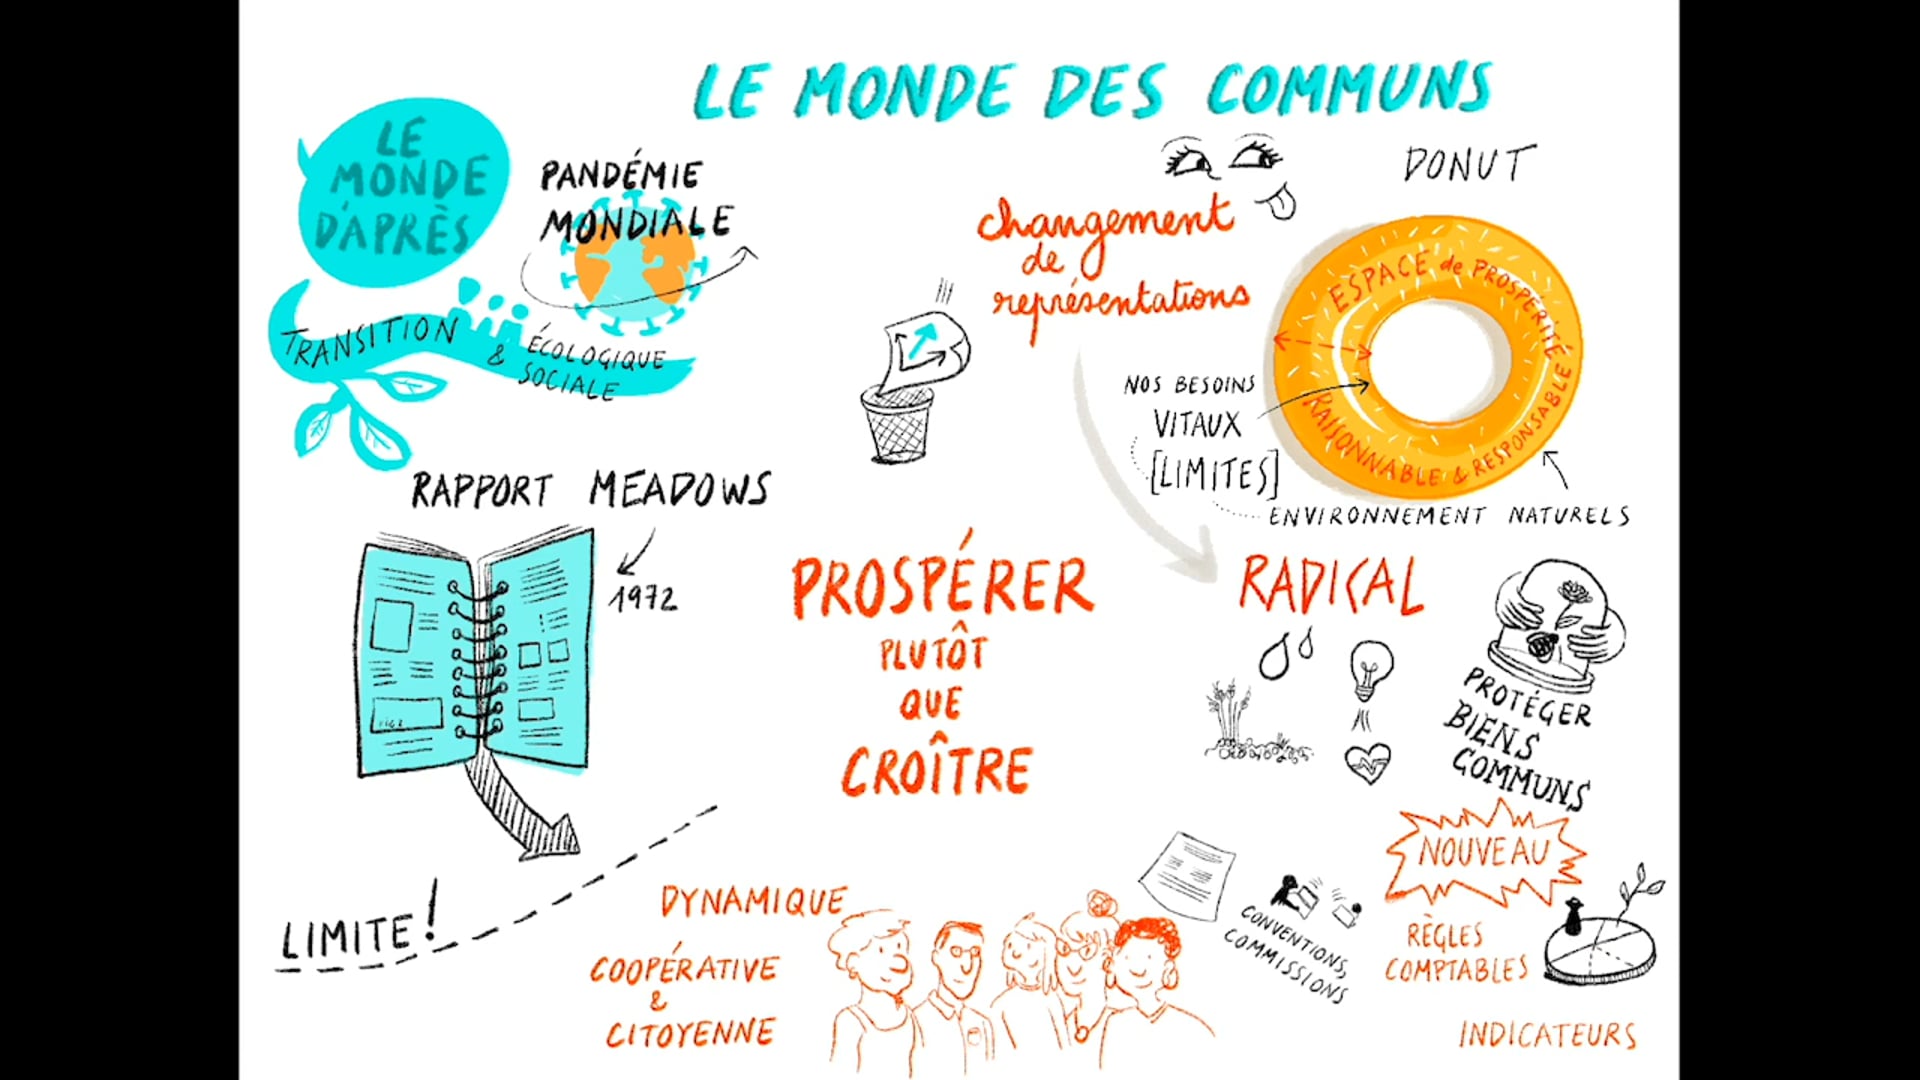 LE MONDE DES COMMUNS
LE
MONDE
D'APRÈS
PANDÉMIE
MONDIALE
TRANSITION
&
ÉCOLOGIQUE
SOCIALE
RAPPORT MEADOWS
1972
LIMITE!
changement
de
représentations
DONUT
ESPACE de PROSPÉRITÉ
RAISONNABLE & RESPONSABLE
NOS BESOINS
VITAUX
[LIMITES]
ENVIRONNEMENT NATURELS
PROSPÉRER
PLUTÔT
QUE
CROÎTRE
RADICAL
PROTÉGER
BIENS
COMMUNS
NOUVEAU
RÈGLES
COMPTABLES
INDICATEURS
CONVENTIONS,
COMMISSIONS
DYNAMIQUE
COOPÉRATIVE
&
CITOYENNE